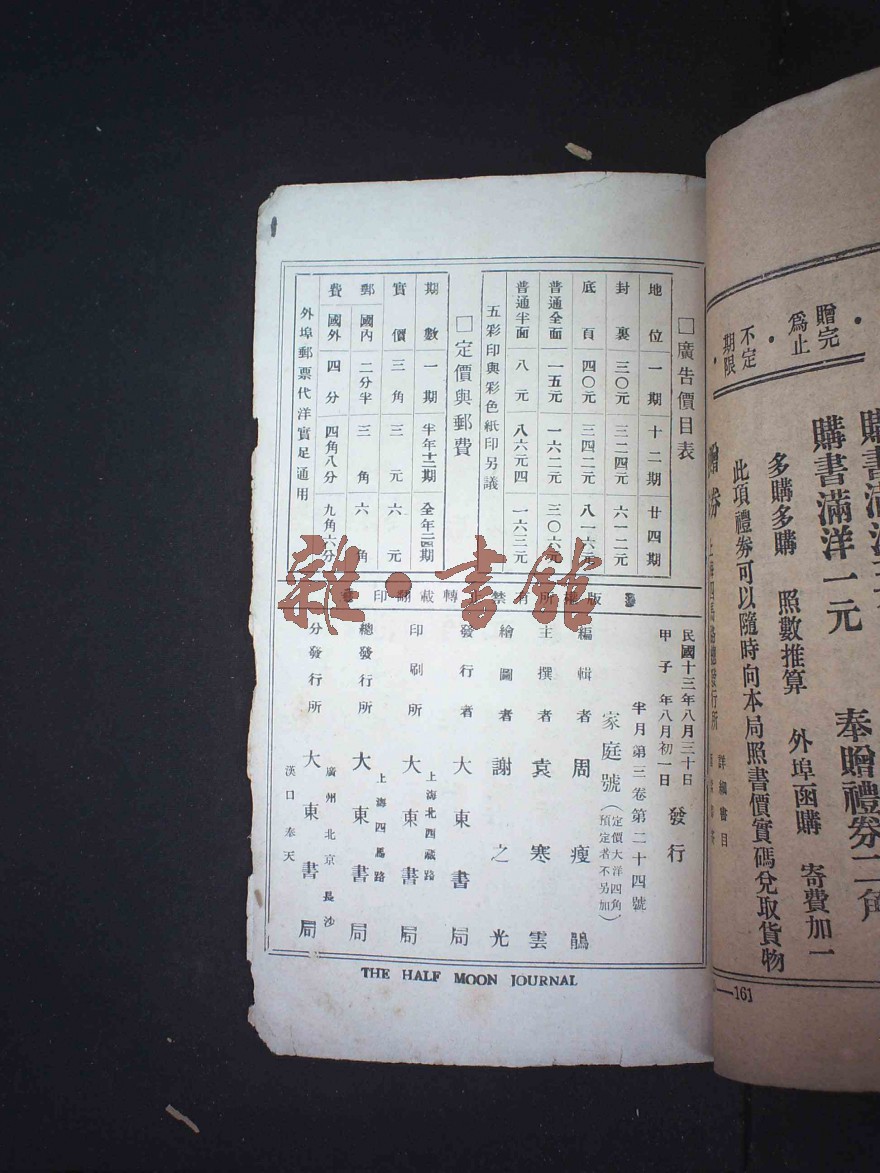 贈完
爲止
不定
期限
購書滿洋一元 奉贈禮券二角
多購多購 照數推算 外埠函購 寄費加一
此項禮券可以隨時向本局照書價實碼兌取貨物
詳細書目
161
□廣告價目表
地位 一期 十二期 廿四期
封裏 三〇元 三二四元 六一二元
底頁 四〇元 三四二元 八一六元
普通全面 一五元 一六二元 三〇六元
普通半面 八元 八六元四 一六三元
五彩印與彩色紙印另議
□定價與郵費
期數 一期 半年十二期 全年二四期
實價 三角 三元 六元
郵 國內 二分半 三角 六角
費 國外 四分 四角八分 九角六分
外埠郵票代洋實足通用
版權所有禁止轉載翻印
民國十三年八月三十日
甲子年八月初一日
發行
半月第三卷第二十四號
家庭號
(定價大洋四角
預定者不另加)
編輯者 周瘦鵑
主撰者 袁寒雲
繪圖者 謝之光
發行者 大東書局
上海北西藏路
印刷所 大東書局
上海四馬路
總發行所 大東書局
廣州 北京 長沙
分發行所 大東書局
漢口 奉天
THE HALF MOON JOURNAL
雜·書館